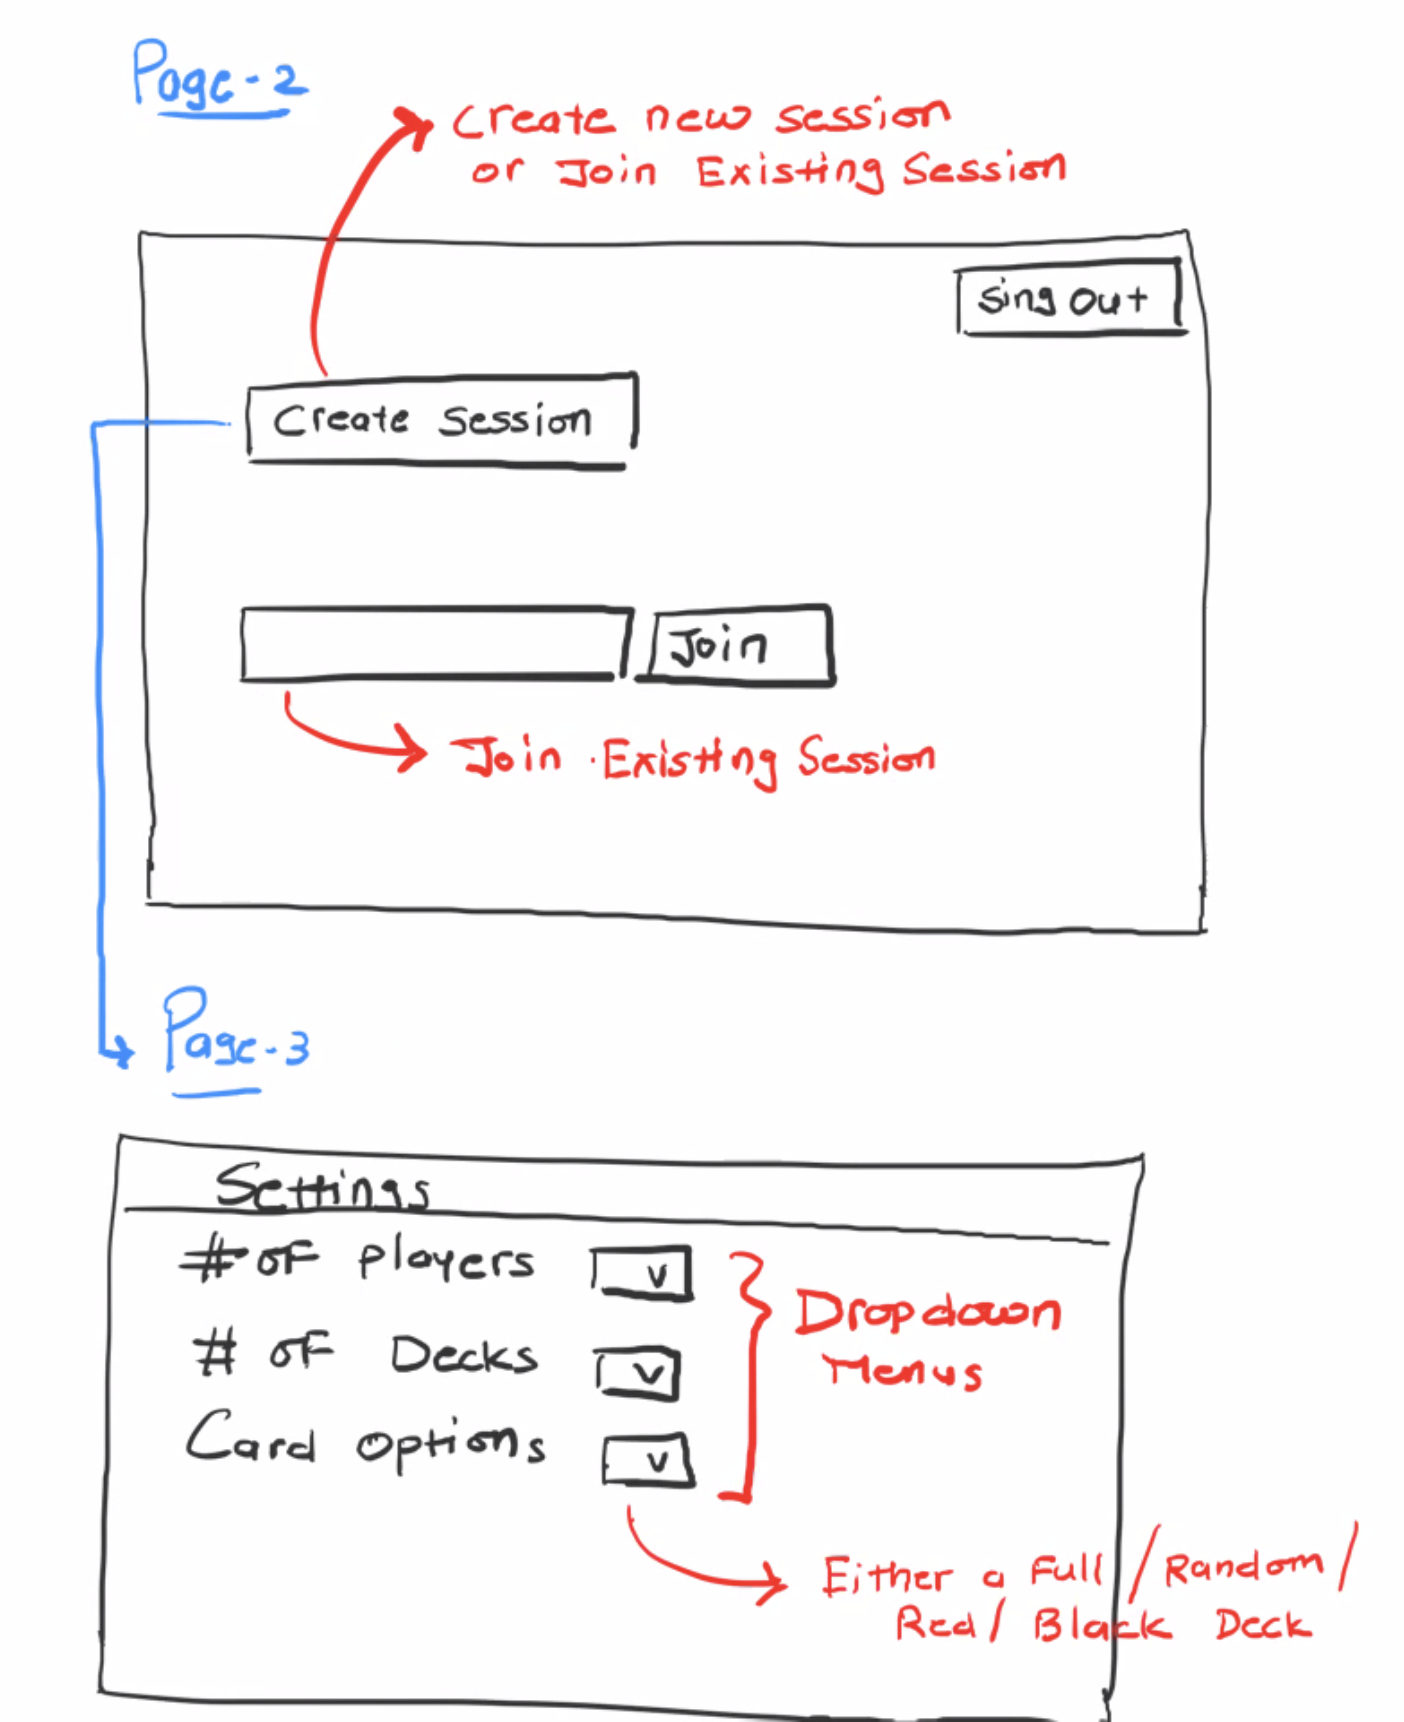 Page-2
Create new session
or Join Existing Session
Sing Out
Create Session
Join
Join Existing Session
Page-3
Settings
# of players
# of Decks
Card options
Dropdown
Menus
Either a Full / Random /
Red / Black Deck